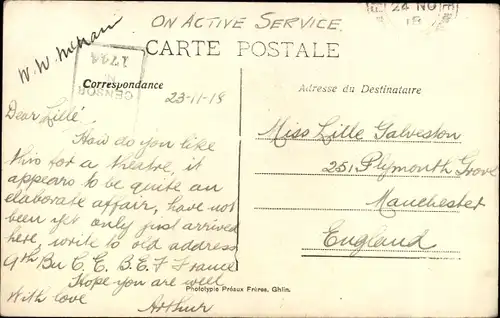 ON ACTIVE SERVICE.
24 NO
18
CARTE POSTALE
W. W.
CENSOR
1744
Correspondance
Adresse du Destinataire
23-11-18
Dear Lille,
How do you like
this for a theatre, it
appears to be quite an
elaborate affair, have not
been yet only just arrived
here, write to old address
9th Bn C. E. B.E.F France
Hope you are well
With love Arthur
Miss Lille Galveston
251 Plymouth Grove
Manchester
England
Phototypie Préaux Frères, Ghlin.